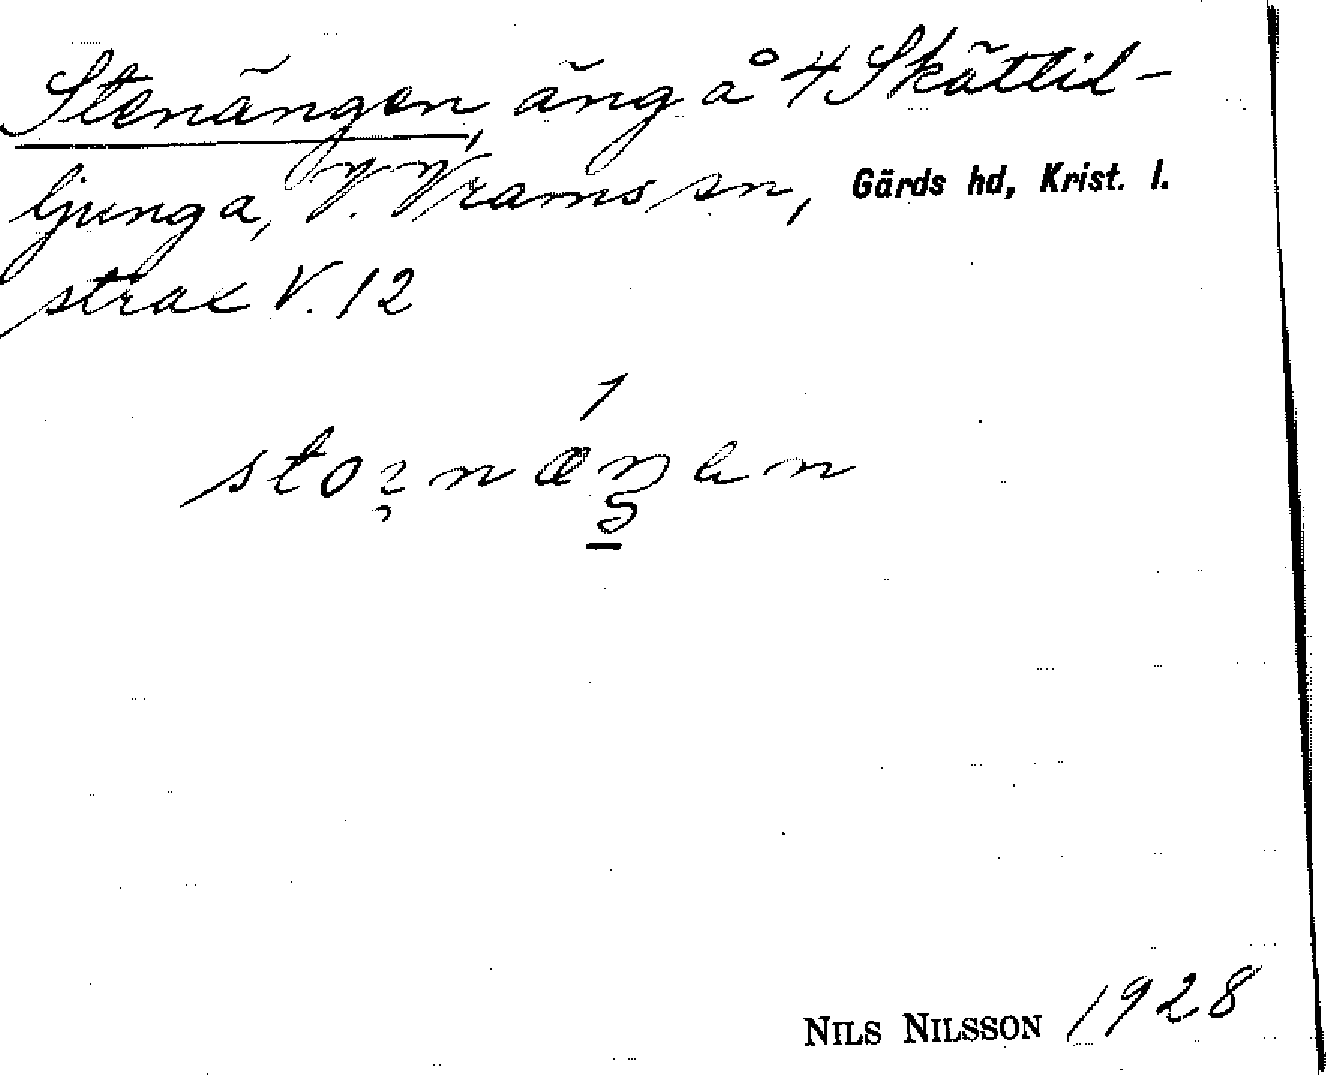 Stenängen, äng å 4 Skättil-
ljunga, V. Vrams sn, Gärds hd, Krist. l.
strax V. 12
NILS NILSSON 1928